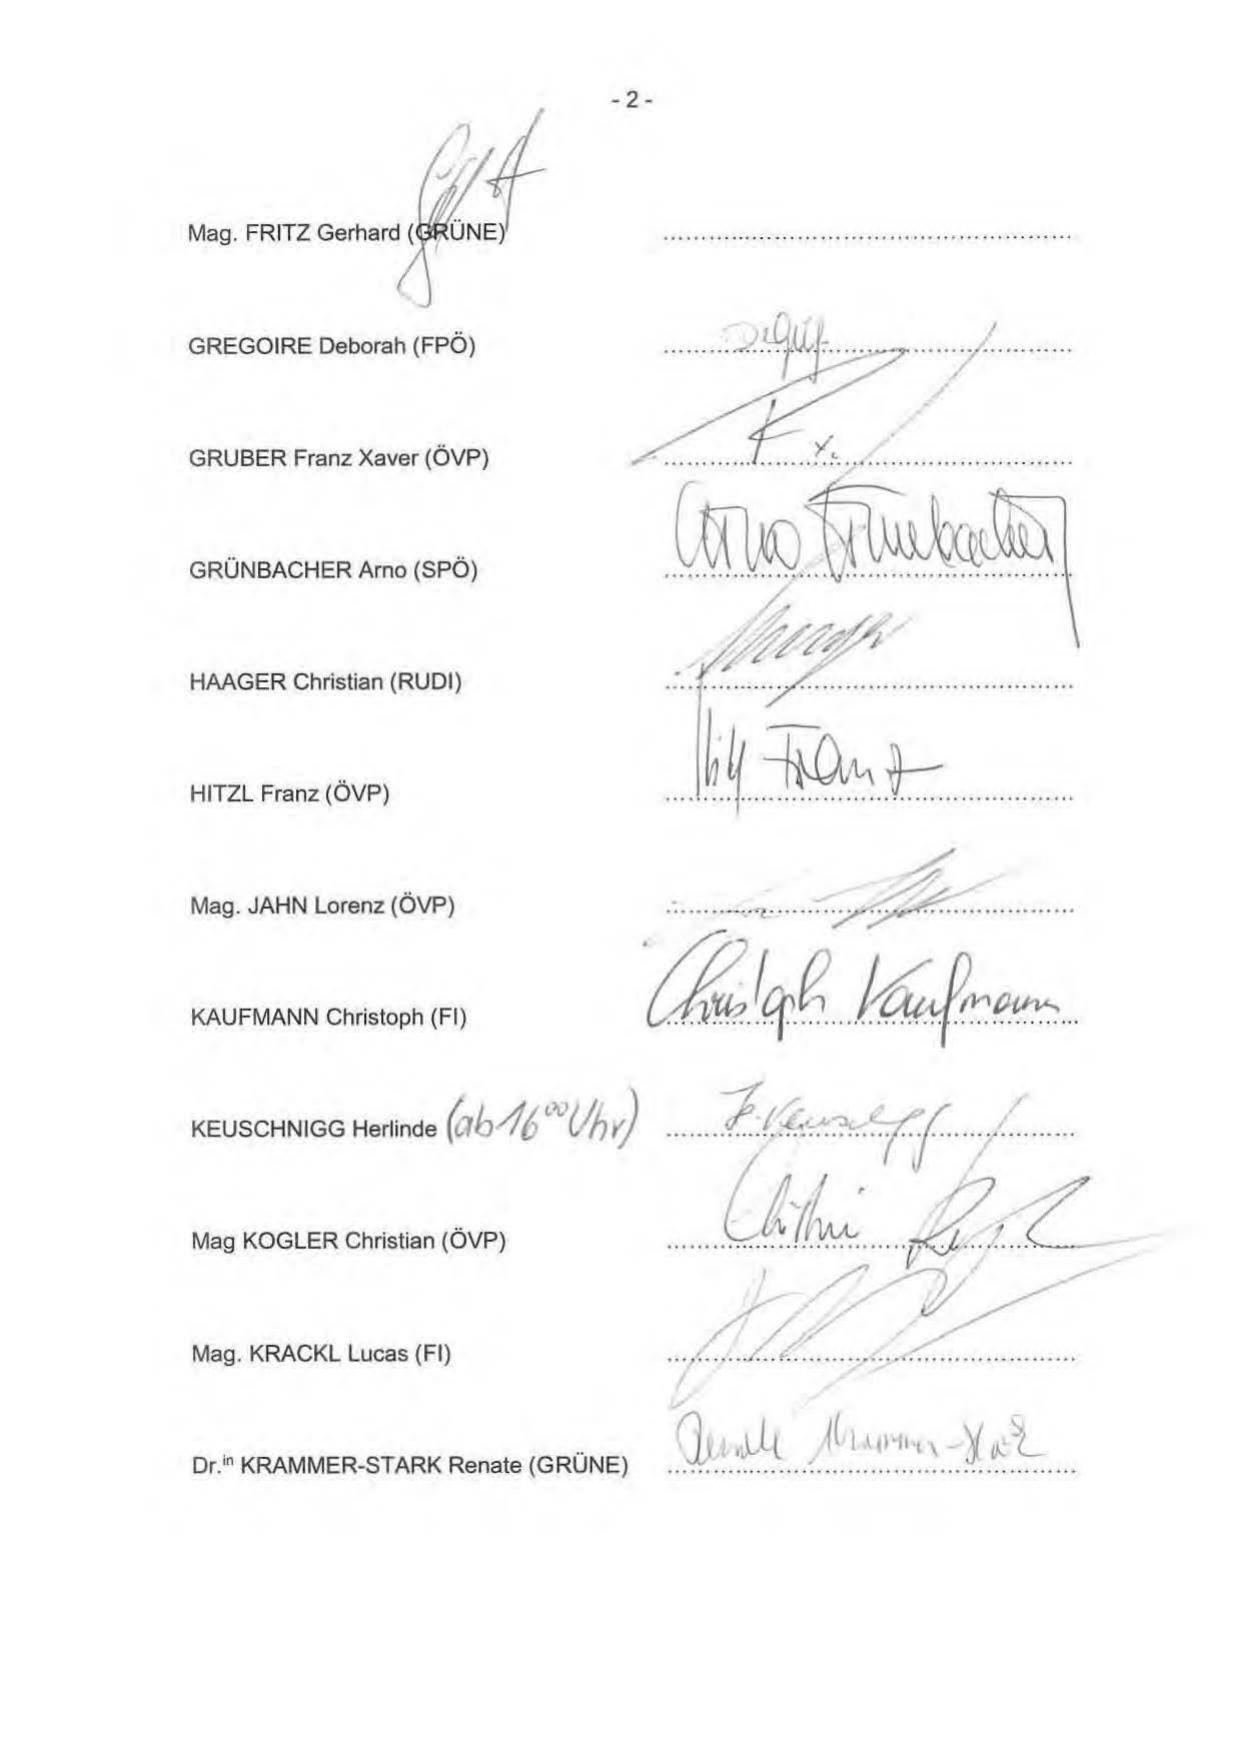 - 2 -
Mag. FRITZ Gerhard (GRÜNE)
GREGOIRE Deborah (FPÖ)
GRUBER Franz Xaver (ÖVP)
GRÜNBACHER Arno (SPÖ) Arno Grünbacher
HAAGER Christian (RUDI)
HITZL Franz (ÖVP) Franz
Mag. JAHN Lorenz (ÖVP)
KAUFMANN Christoph (FI) Christoph Kaufmann
KEUSCHNIGG Herlinde (ab 16⁰⁰ Uhr)
Mag KOGLER Christian (ÖVP)
Mag. KRACKL Lucas (FI)
Dr.ⁱⁿ KRAMMER-STARK Renate (GRÜNE) Renate Krammer-Stark